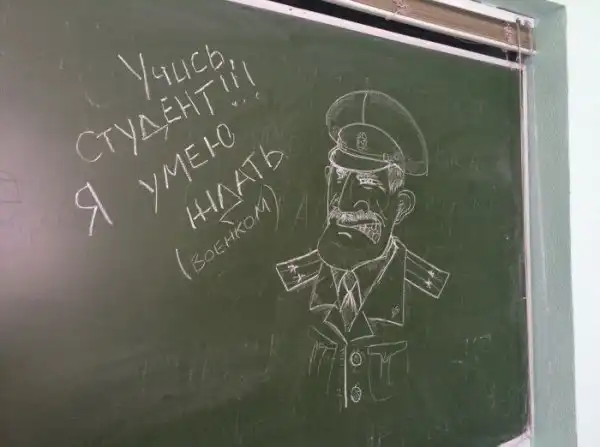 Учись,
СТУДЕНТ!!!
Я УМЕЮ
ЖДАТЬ
(ВОЕНКОМ)